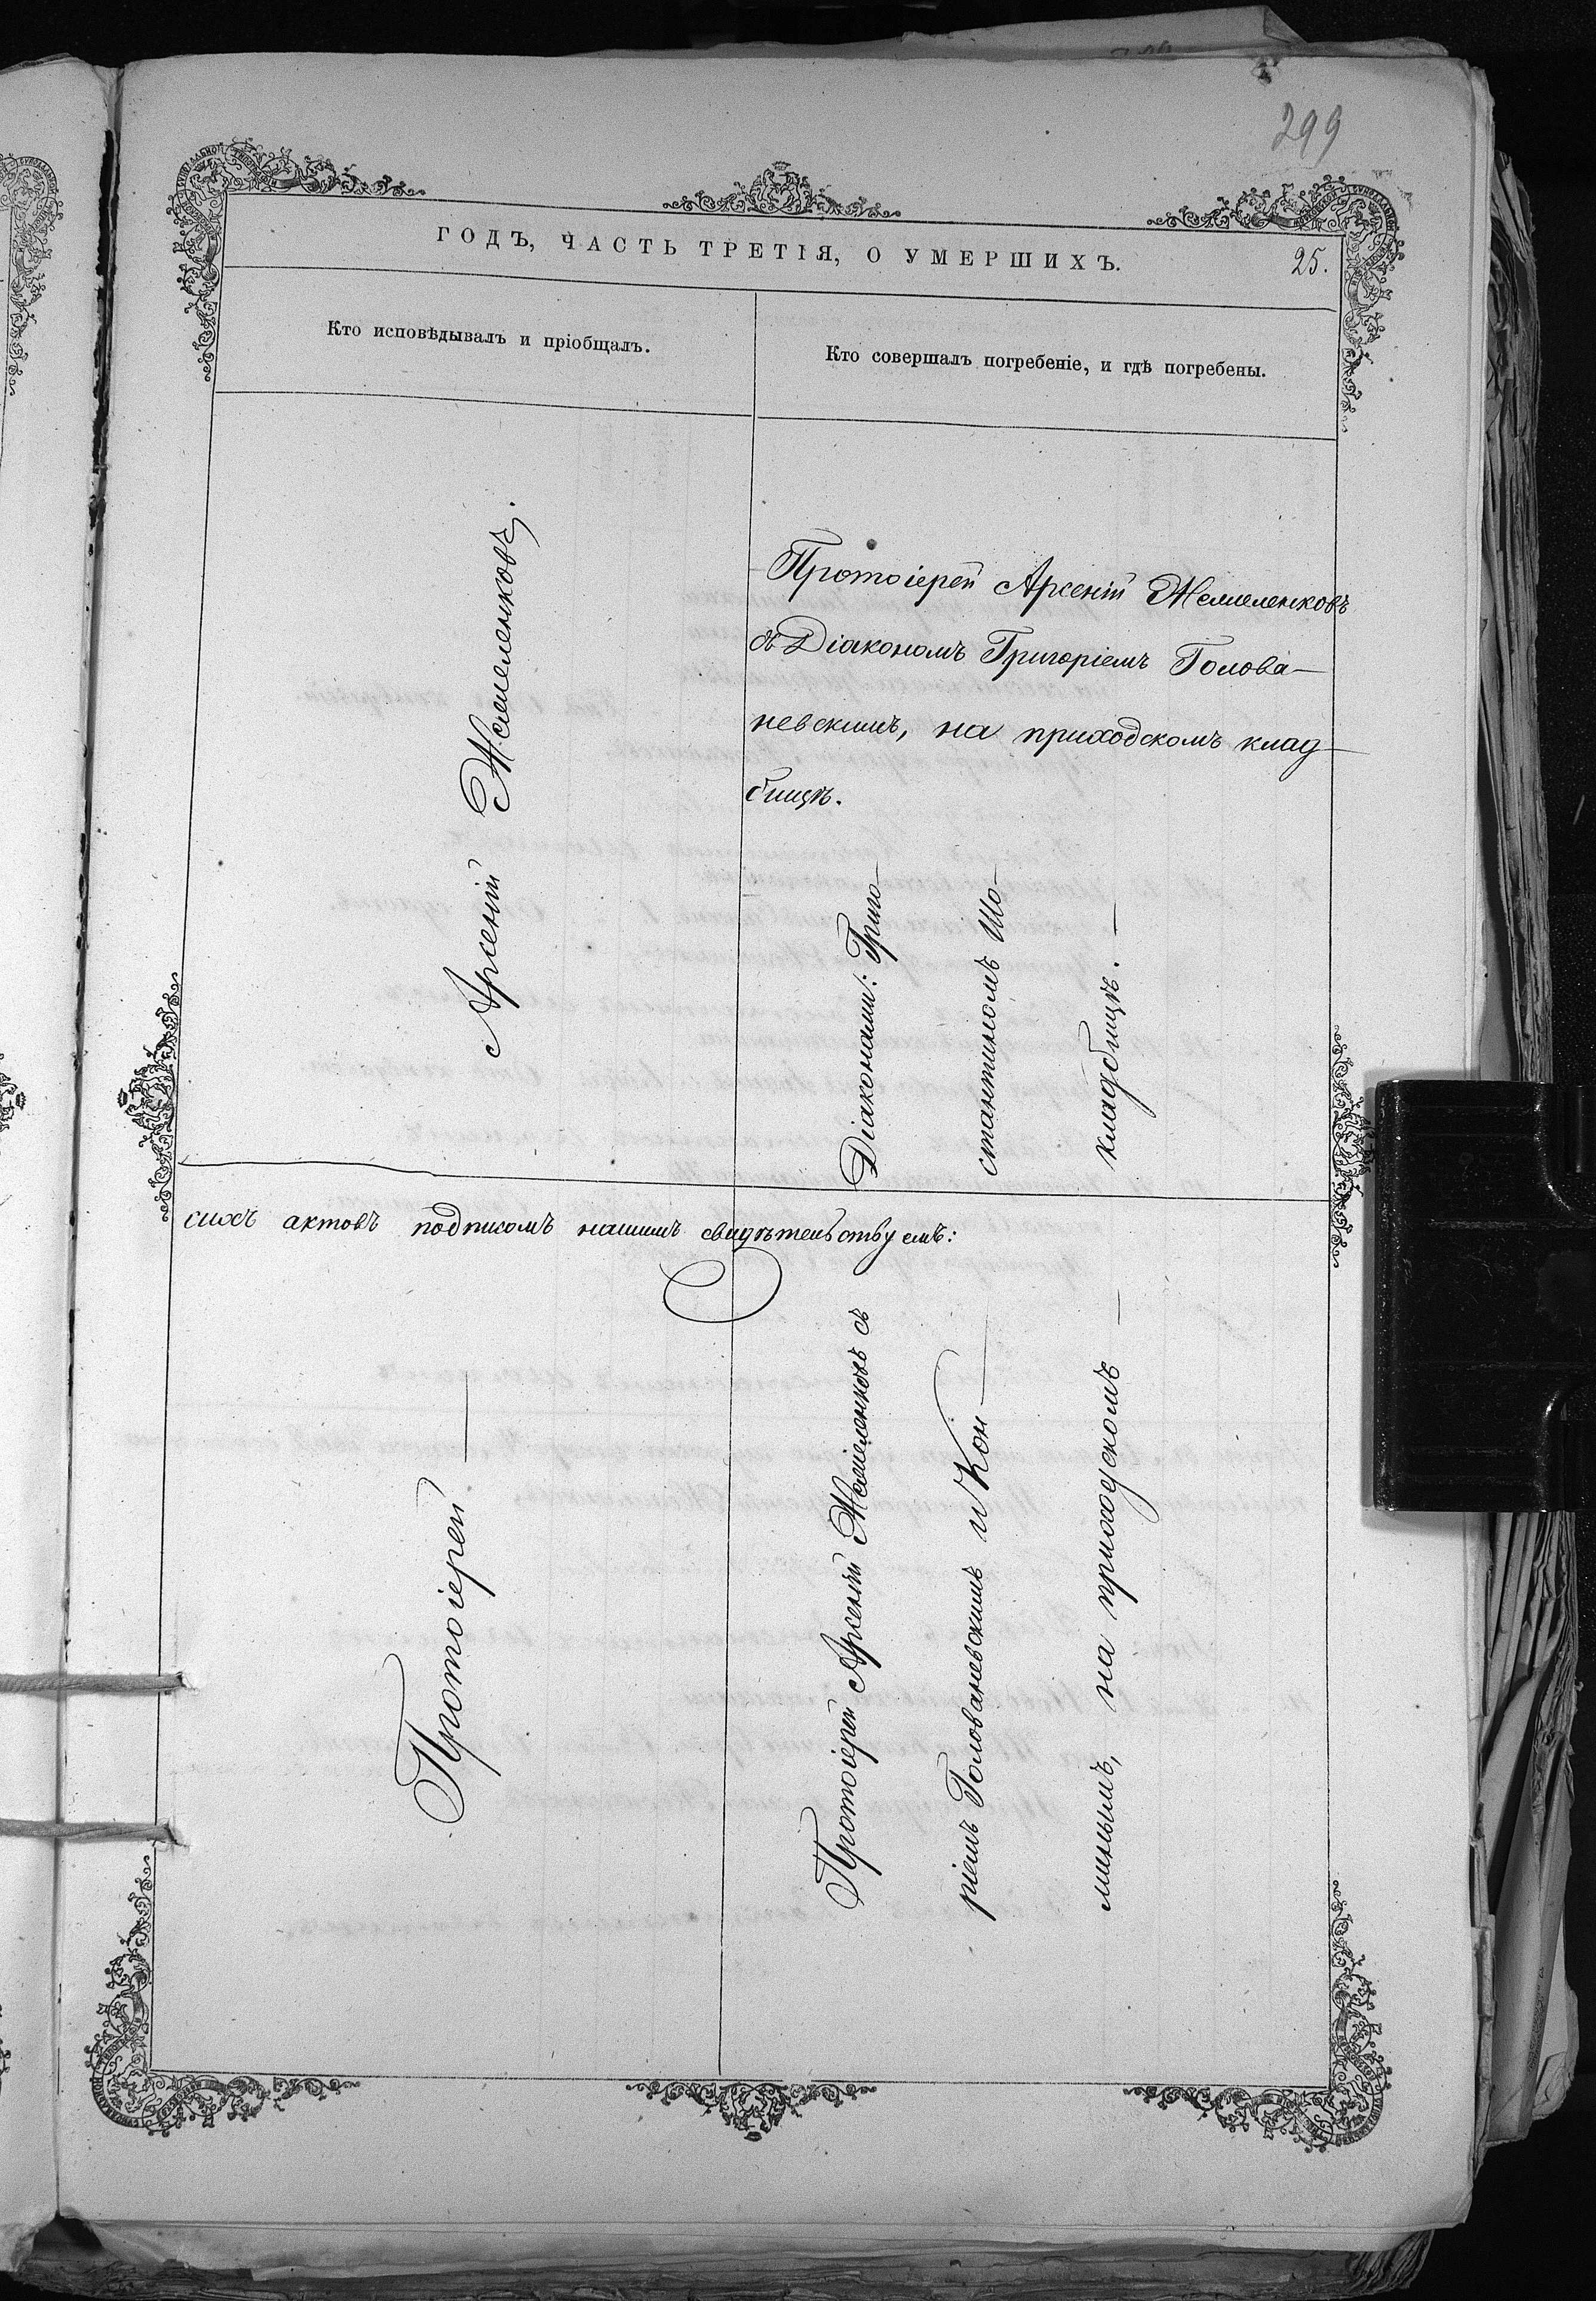 299
ГОДЪ, ЧАСТЬ ТРЕТІЯ, О УМЕРШИХЪ.
25.
Кто исповѣдывалъ и пріобщалъ.
Кто совершалъ погребеніе, и гдѣ погребены.
Протоіерей Арсеній Жемеленковъ.
Протоіерей Арсеній Жемеленковъ
съ Діакономъ Григоріемъ Голова-
невскимъ, на приходскомъ клад-
бищѣ.
Протоіерей Арсеній Жемеленковъ съ Діаконами: Григо-
ріемъ Голованевскимъ и Кон-стантиномъ Шо-
минымъ, на приходскомъ кладбищѣ.
сихъ актовъ подписомъ нашимъ свидѣтельствуемъ: